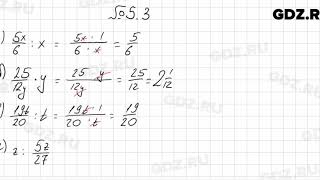 GDZ.RU
№5.3
) 5x/6 : x = 5x · 1/6 · x = 5/6
) 25/12y · y = 25 · y/12y = 25/12 = 2 1/12
) 19t/20 : t = 19t · 1/20 · t = 19/20
) z : 5z/27